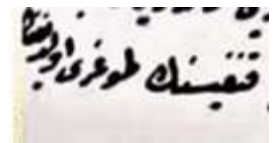 قنغیسنك طوغری اولدیغنی